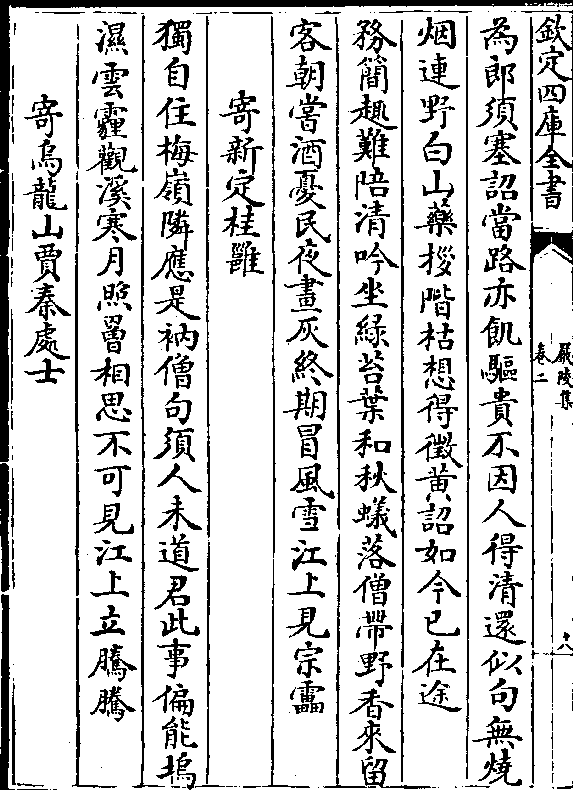 欽定四庫全書
嚴陵集
卷二
十八
為郎須塞詔當路亦飢驅貴不因人得清還似句無燒
烟連野白山藥拶階枯想得徵黃詔如今已在途
務簡趣難陪清吟坐綠苔葉和秋蟻落僧帶野香來留
客朝嘗酒憂民夜畫灰終期冒風雪江上見宗靁
寄新定桂雝
獨自住梅嶺隣應是衲僧句須人未道君此事偏能塢
濕雲霾觀溪寒月照罾相思不可見江上立騰騰
寄烏龍山賈秦處士